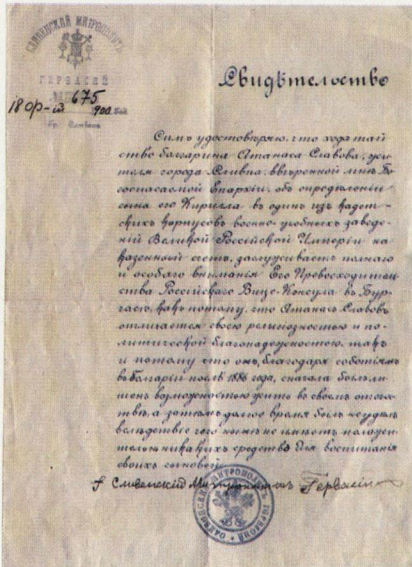 СЛИВЕНСКИЙ МИТРОПОЛИТЪ
ГЕРВАСІЙ
675
900
Гр. Сливенъ
Свидѣтельство
Симъ удостовѣряю, что ходатай
ство болгарина Атанаса Славова, жи
теля города Сливна, ввѣренной мнѣ Бо
госпасаемой Епархіи, объ опредѣленіи
сына его Кирилла въ одинъ изъ кадет-
скихъ корпусовъ военно-учебныхъ заведе-
ній Великой Россійской Имперіи на
казенный счетъ, заслуживаетъ полнаго
и особаго вниманія Его Превосходитель
ства Россійскаго Вице-Консула въ Бур-
гасѣ, какъ потому, что Атанасъ Славовъ
отличается своею религіозностью и по-
литической благонадежностью, такъ
и потому что онъ, благодаря событіямъ
въ Болгаріи послѣ 1886 года, сначала былъ ли
шенъ возможности жить въ своемъ отече
ствѣ, а затѣмъ долгое время былъ не у дѣлъ
вслѣдствіе чего нынѣ не имѣетъ положи
тельно никакихъ средствъ для воспитанія
своихъ сыновей.
† Сливенскій Митрополитъ Гервасій
СЛИВЕНСКИЙ МИТРОПОЛИТЪ ГЕРВАСІЙ